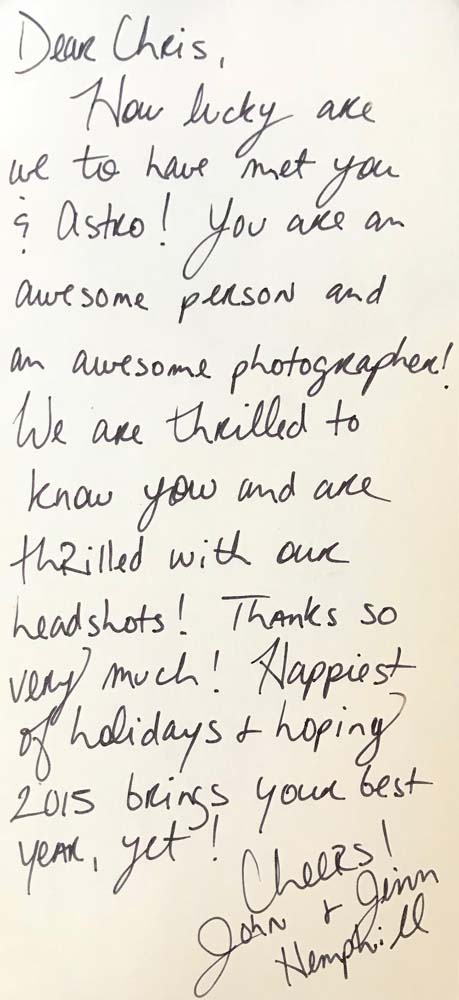 Dear Chris,
How lucky are
we to have met you
& Astro! You are an
awesome person and
an awesome photographer!
We are thrilled to
know you and are
thrilled with our
headshots! Thanks so
very much! Happiest
of holidays & hoping
2015 brings your best
year, yet!
Cheers!
John & Jinn
Hemphill